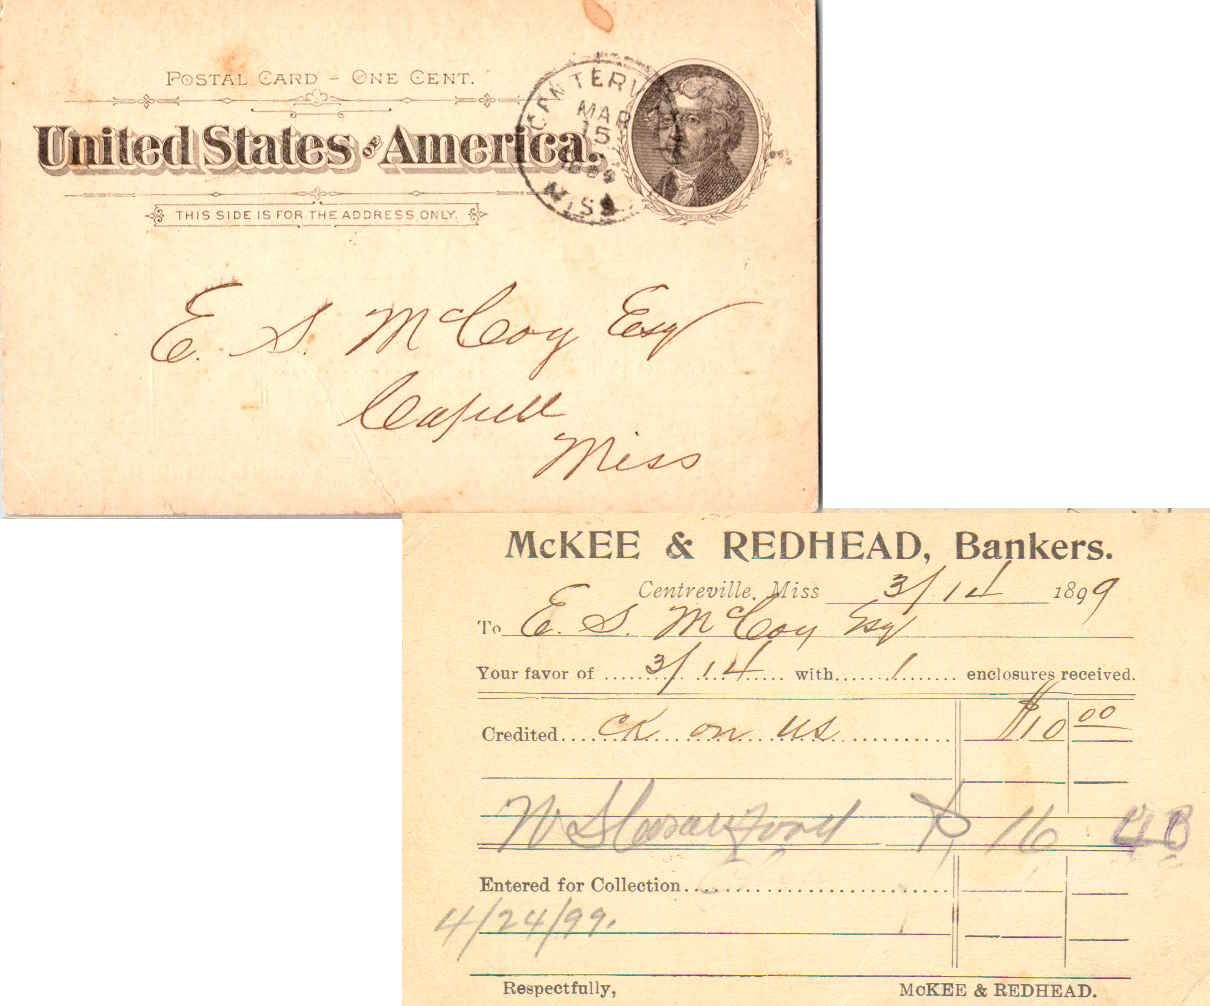 POSTAL CARD - ONE CENT.
United States OF America.
THIS SIDE IS FOR THE ADDRESS ONLY.
MAR
15
MISS
E. S. McCoy Esq
Capell
Miss
McKEE & REDHEAD, Bankers.
Centreville, Miss 3/14 1899
To E. S. McCoy Esq
Your favor of 3/14 with 1 enclosures received.
Credited ck on us $10 00
16
Entered for Collection
4/24/99.
Respectfully, McKEE & REDHEAD.